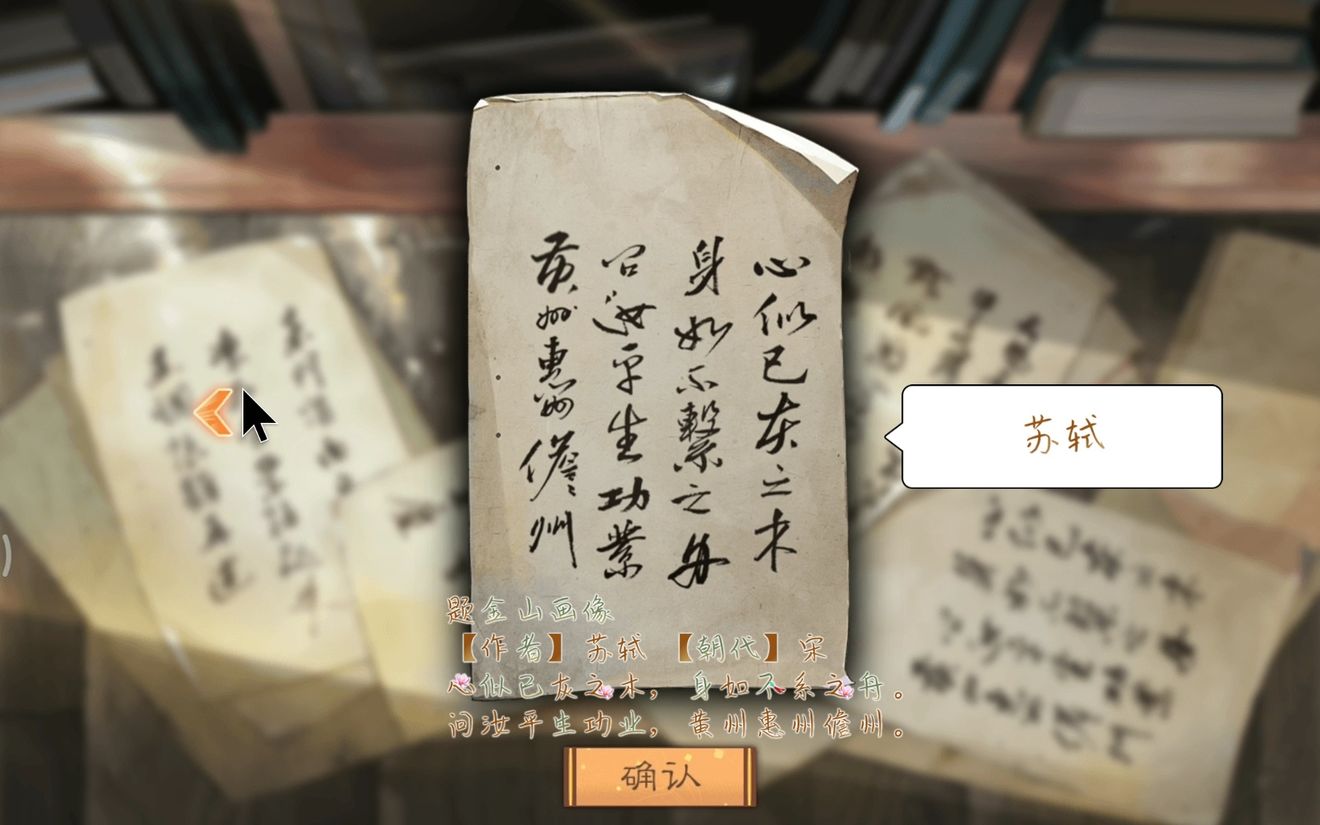 心似已灰之木
身如不繫之舟
问汝平生功業
黄州惠州儋州
苏轼
题金山画像
【作者】苏轼 【朝代】宋
心似已灰之木，身如不系之舟。
问汝平生功业，黄州惠州儋州。
确认